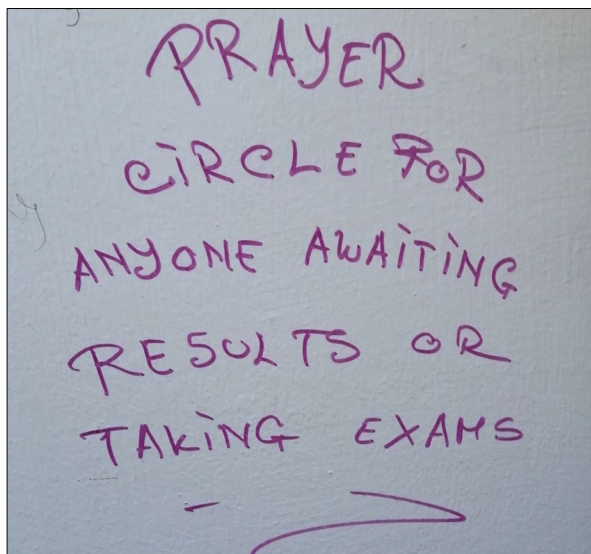 PRAYER
CiRCLE FOR
ANYONE AWAiTiNG
RESULTS OR
TAKiNG EXAMS